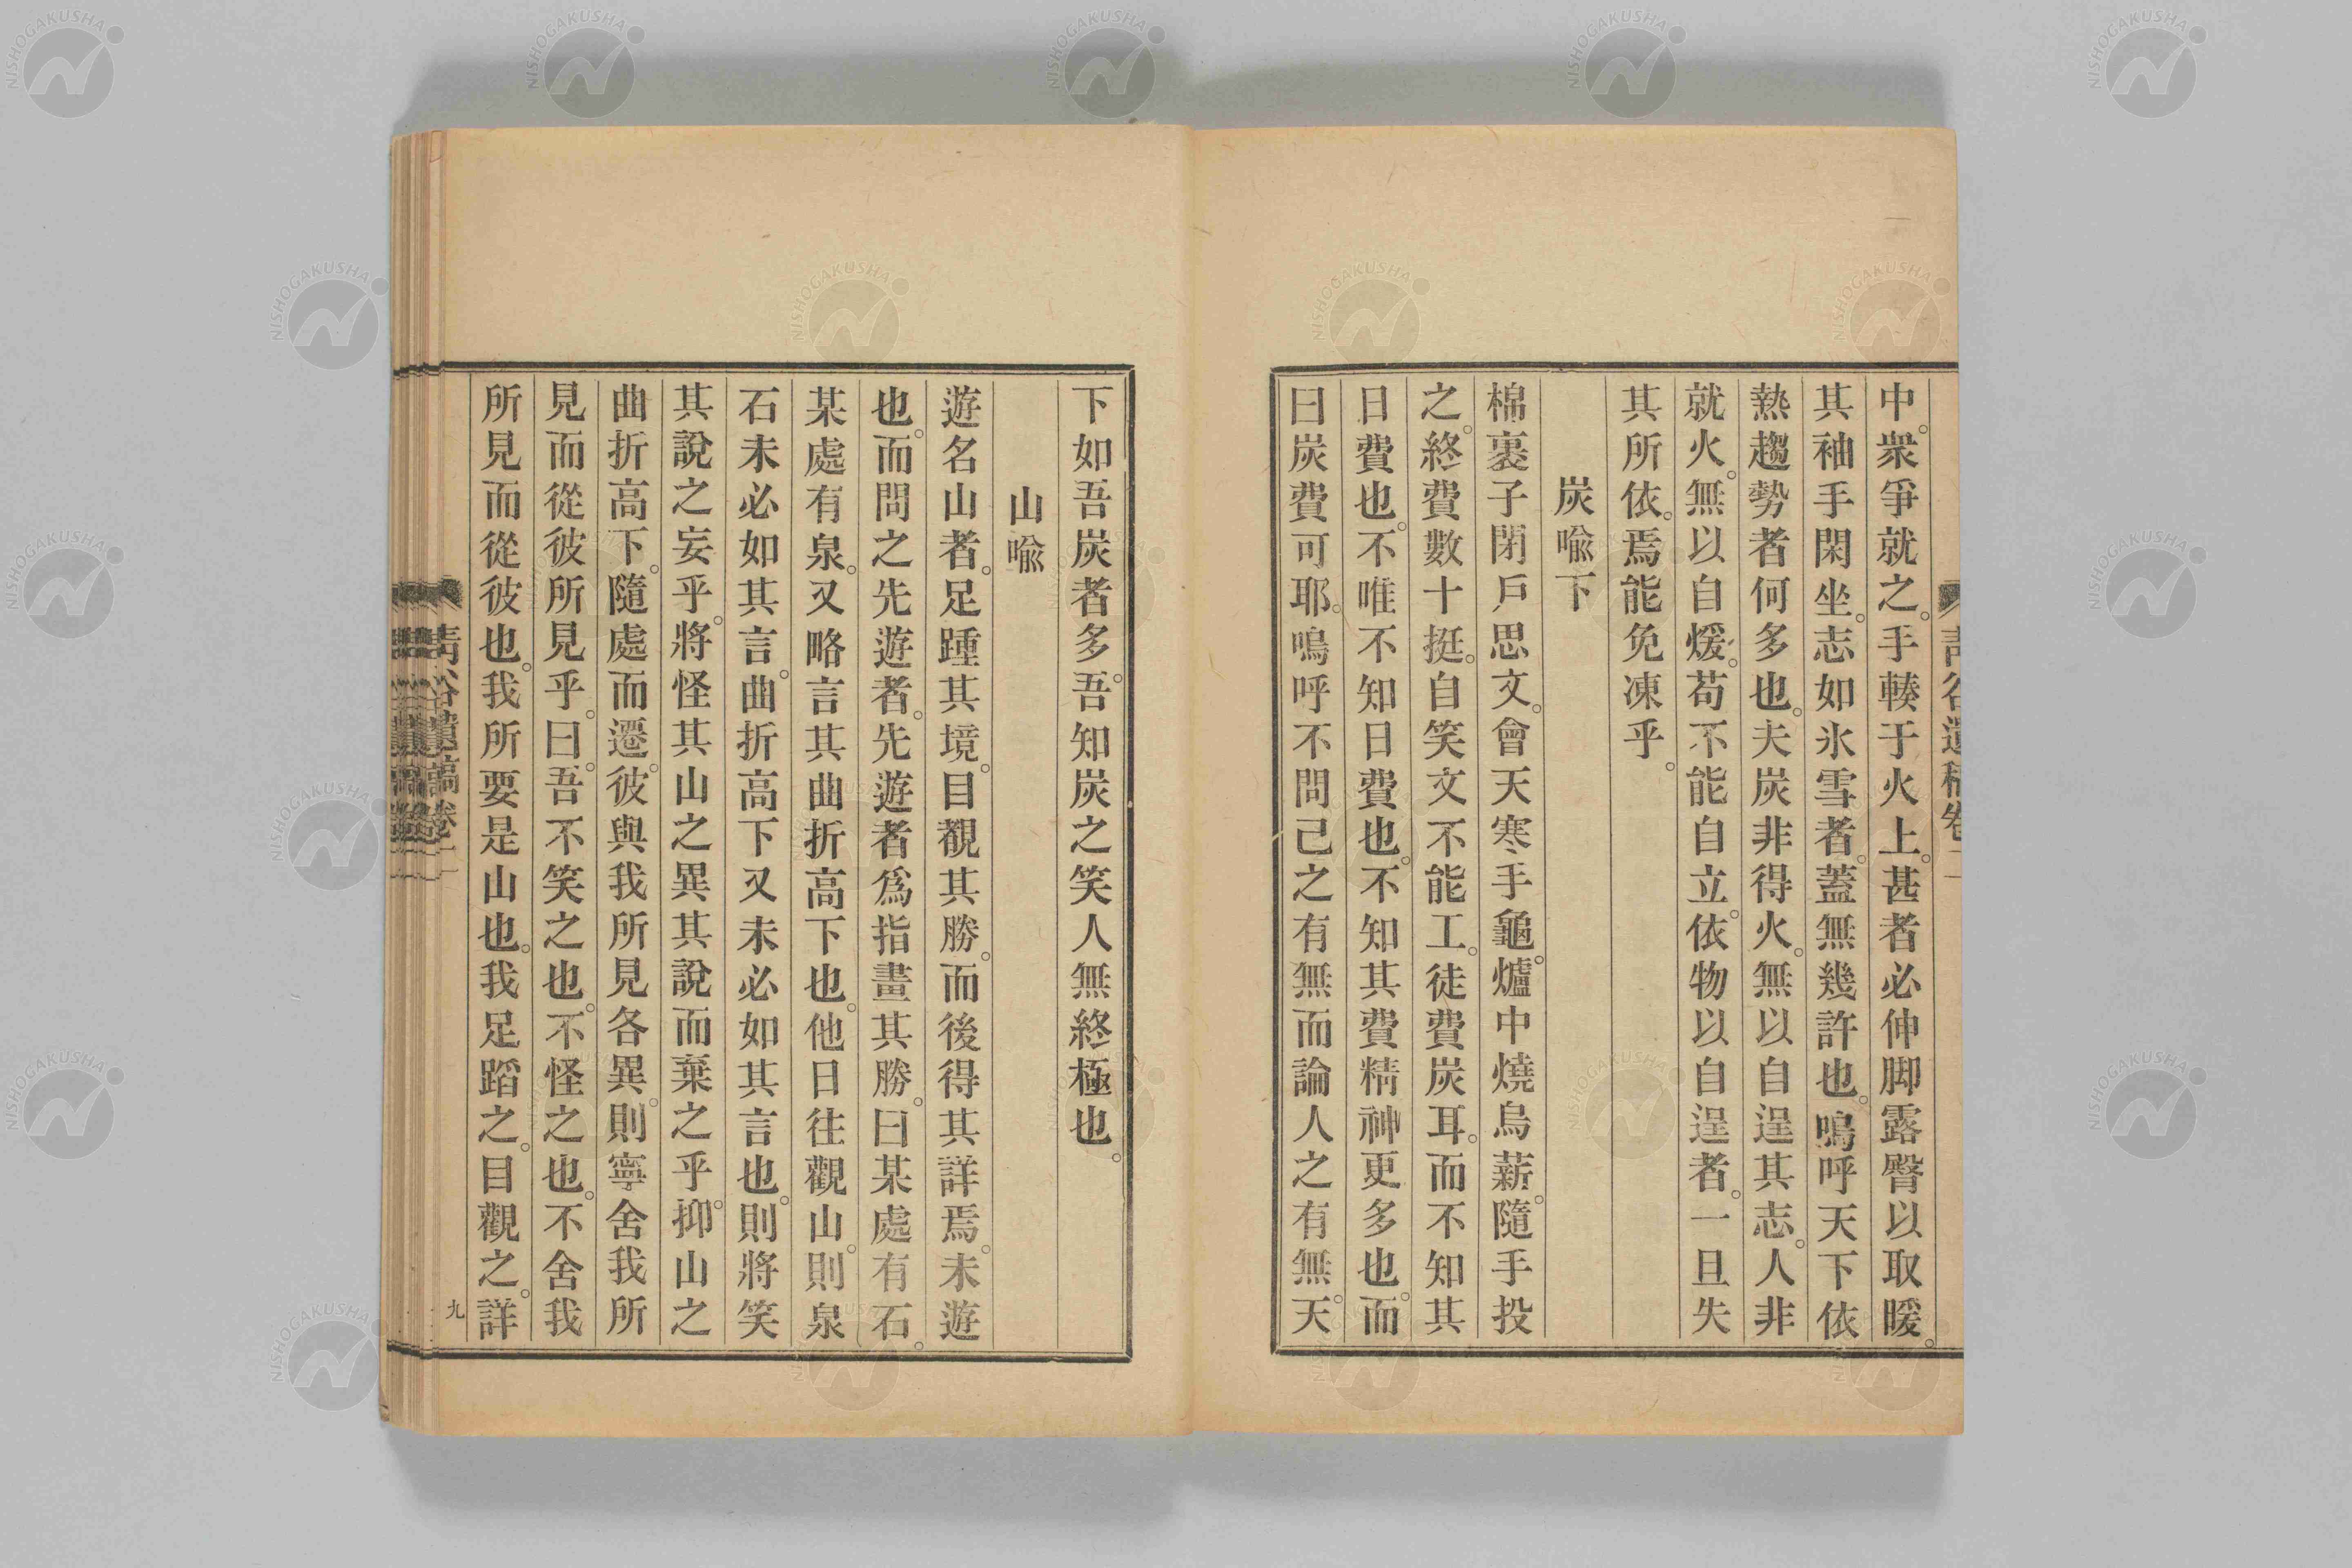 中。衆爭就之。手輳于火上。甚者必伸脚露臀以取暖。
其袖手閑坐。志如氷雪者。蓋無幾許也。嗚呼天下依
熱趨勢者何多也。夫炭非得火。無以自逞其志。人非
就火。無以自煖。苟不能自立。依物以自逞者。一旦失
其所依。焉能免凍乎。
炭喩下
棉裏子閉戶思文。會天寒手龜。爐中燒烏薪。隨手投
之。終費數十挺。自笑文不能工。徒費炭耳。而不知其
日費也。不唯不知日費也。不知其費精神更多也。而
曰炭費可耶。嗚呼不問己之有無而論人之有無。天
下如吾炭者多。吾知炭之笑人無終極也。
山喩
遊名山者。足踵其境。目覩其勝。而後得其詳焉。未遊
也。而問之先遊者。先遊者爲指畫其勝。曰某處有石。
某處有泉。又略言其曲折高下也。他日往觀山。則泉
石未必如其言。曲折高下又未必如其言也。則將笑
其說之妄乎。將怪其山之異其說而棄之乎。抑山之
曲折高下。隨處而遷。彼與我所見各異。則寧舍我所
見而從彼所見乎。曰。吾不笑之也。不怪之也。不舍我
所見而從彼也。我所要是山也。我足蹈之。目觀之。詳
靑谷遺稿卷二
九
NISHOGAKUSHA